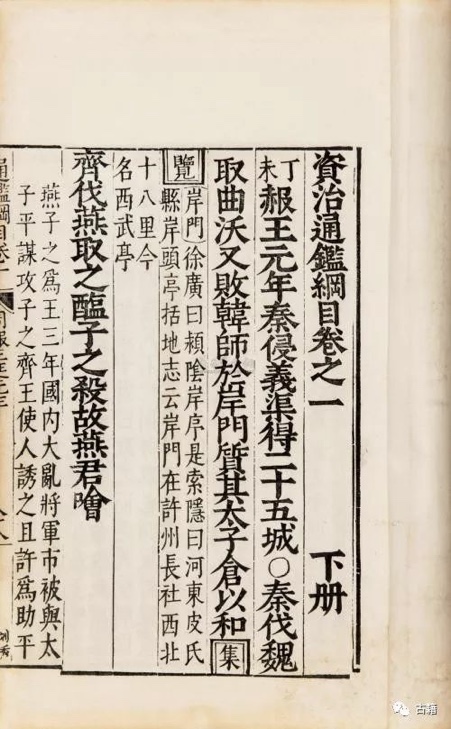 資治通鑑綱目卷之一 下册
丁未 赧王元年秦侵義渠得二十五城○秦伐魏
取曲沃又敗韓師於岸門質其太子倉以和 集
覽 岸門徐廣曰潁陰岸亭是索隱曰河東皮氏
縣岸頭亭括地志云岸門在許州長社西北
十八里今
名西武亭
齊伐燕取之醢子之殺故燕君噲
燕子之為王三年國内大亂將軍市被與太
子平謀攻子之齊王使人誘之且許為助平
通鑑綱目卷一
古籍